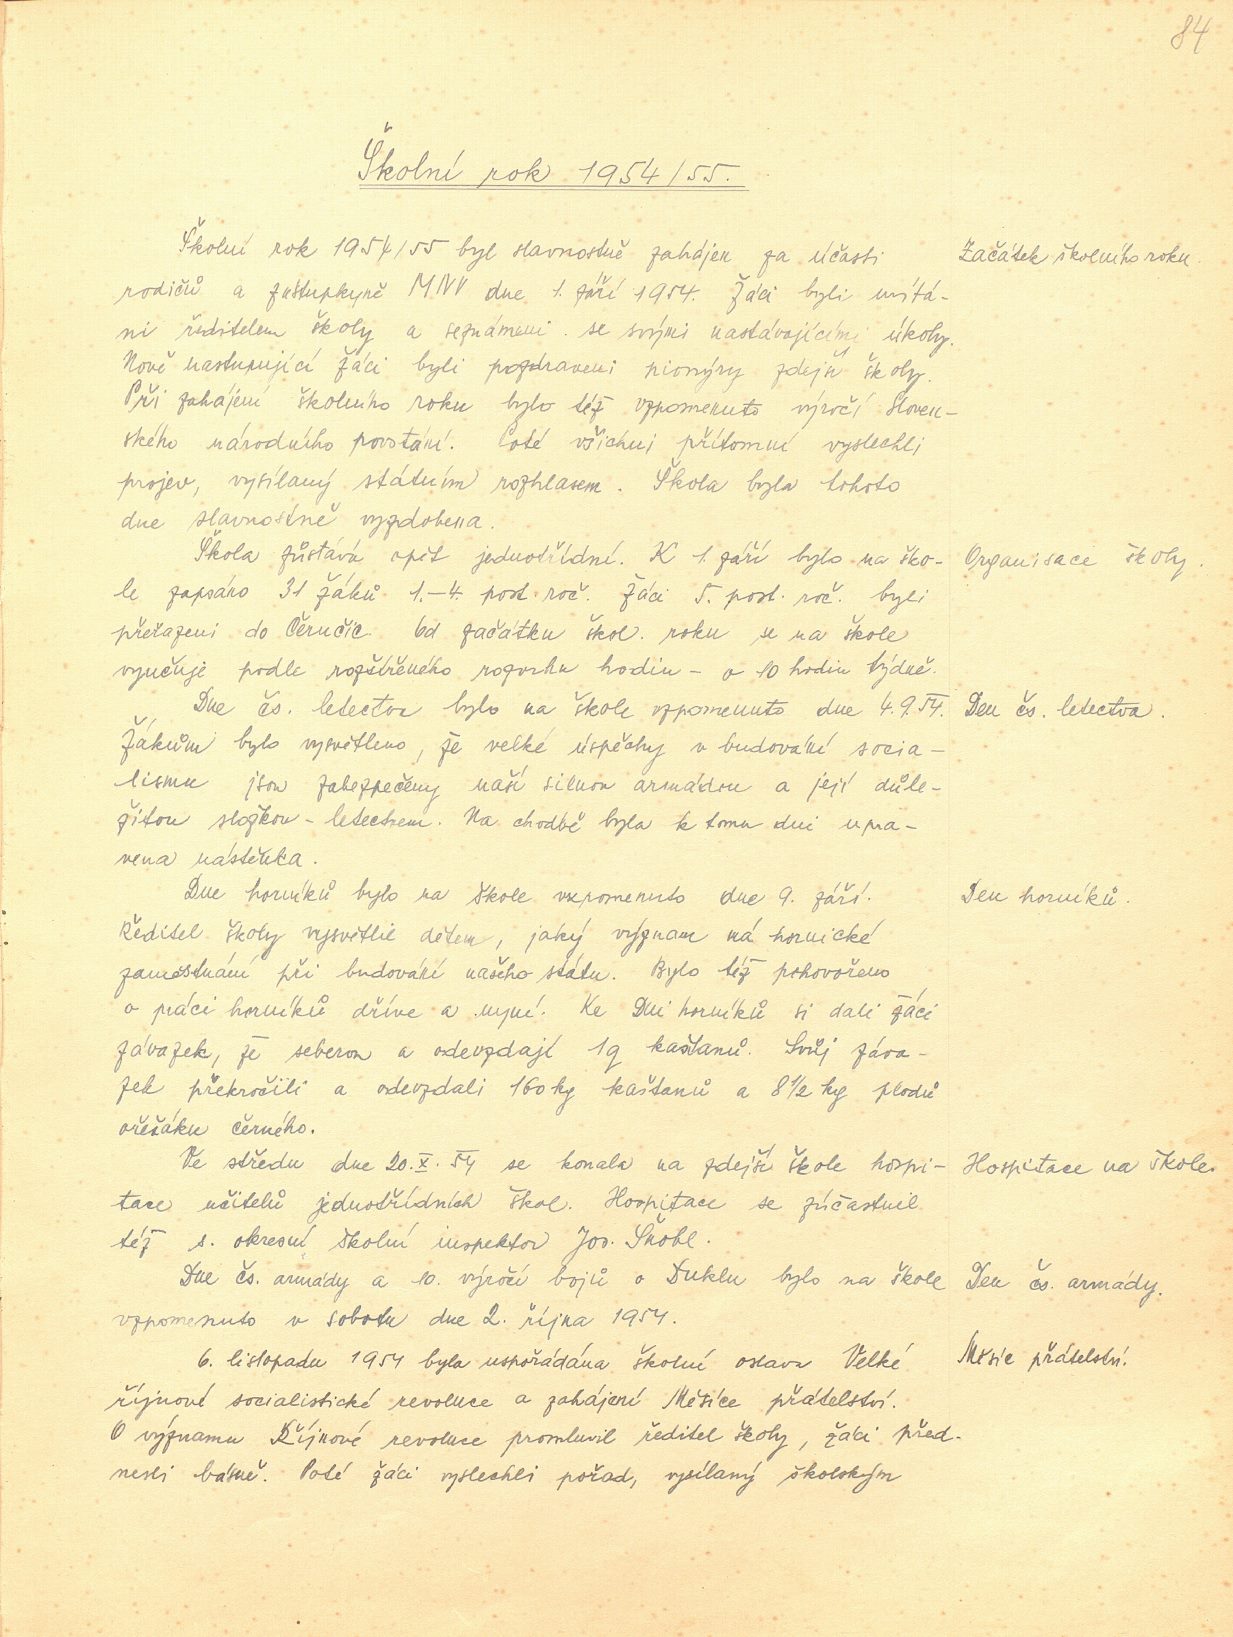 84
Školní rok 1954/55.
Školní rok 1954/55 byl slavnostně zahájen za účasti
Začátek školního roku.
rodičů a zástupkyně MNV dne 1. září 1954. Žáci byli uvítá-
ni ředitelem školy a seznámeni se svými nastávajícími úkoly.
Nově nastupující žáci byli pozdraveni pionýry zdejší školy.
Při zahájení školního roku bylo též vzpomenuto výročí Sloven-
ského národního povstání. Poté všichni přítomní vyslechli
projev, vysílaný státním rozhlasem. Škola byla tohoto
dne slavnostně vyzdobena.
Škola zůstává opět jednotřídní. K 1. září bylo na ško-
Organisace školy.
le zapsáno 31 žáků 1.–4. post. roč. Žáci 5. post. roč. byli
přeřazeni do Černčic. Od začátku škol. roku se na škole
vyučuje podle rozšířeného rozvrhu hodin – o 10 hodin týdně.
Dne čs. letectva bylo na škole vzpomenuto dne 4.9.54.
Den čs. letectva.
Žákům bylo vysvětleno, že velké úspěchy v budování socia-
lismu jsou zabezpečeny naší silnou armádou a její důle-
žitou složkou – letectvem. Na chodbě byla k tomu dni upra-
vena nástěnka.
Dne horníků bylo na škole vzpomenuto dne 9. září.
Den horníků.
Ředitel školy vysvětlil dětem, jaký význam má hornické
zaměstnání při budování našeho státu. Bylo též pohovořeno
o práci horníků dříve a nyní. Ke Dni horníků si dali žáci
závazek, že seberou a odevzdají 1q kaštanů. Svůj záva-
zek překročili a odevzdali 160 kg kaštanů a 8 1/2 kg plodů
ořešáku černého.
Ve středu dne 20.X.54 se konala na zdejší škole hospi-
Hospitace na škole.
tace učitelů jednotřídních škol. Hospitace se zúčastnil
též s. okresní školní inspektor Jos.
Dne čs. armády a 10. výročí bojů o Duklu bylo na škole
Den čs. armády.
vzpomenuto v sobotu dne 2. října 1954.
6. listopadu 1954 byla uspořádána školní oslava Velké
Měsíc přátelství.
říjnové socialistické revoluce a zahájení Měsíce přátelství.
O významu Říjnové revoluce promluvil ředitel školy, žáci před-
nesli básně. Poté žáci vyslechli pořad, vysílaný školským